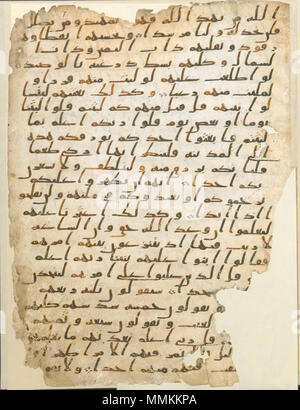 الله من يهد الله فهو المهتد ومن يضلل
فلن تجد له وليا مرشدا وتحسبهم ايقاظا وهم
رقود ونقلبهم ذات اليمين وذات ا
لشمال وكلبهم بسط ذراعيه بالوصيد
لو اطلعت عليهم لوليت منهم فرارا و
لملئت منهم رعبا وكذلك بعثنهم ليتسا
لوا بينهم قال قائل منهم كم لبثتم قالوا لبثنا
يوما او بعض يوم قالوا ربكم اعلم بما
لبثتم فابعثوا احدكم بورقكم هذه
الى المدينة فلينظر ايها ازكى طعما
فلياتكم برزق منه وليتلطف ولا يشعرن
بكم احدا انهم ان يظهروا عليكم
يرجموكم او يعيدوكم في ملتهم ولن تفلحوا
اذا ابدا وكذلك اعثرنا عليهم
ليعلموا ان وعد الله حق وان الساعة
لا ريب فيها اذ يتنزعون بينهم امرهم
فقالوا ابنوا عليهم بنينا ربهم اعلم
بهم قال الذين غلبوا على امرهم لنتخذن
مسجدا سيقولون ثلثة رابعهم
كلبهم ويقولون خمسة سادسهم كلبهم
بالغيب ويقولون سبعة وثامنهم
قل ربي اعلم بعدتهم ما يعلمهم
قليل فلا تمار فيهم الا مراء ظهرا
تستفت فيهم منهم احدا ولا تقو
alamy
MMMKPA